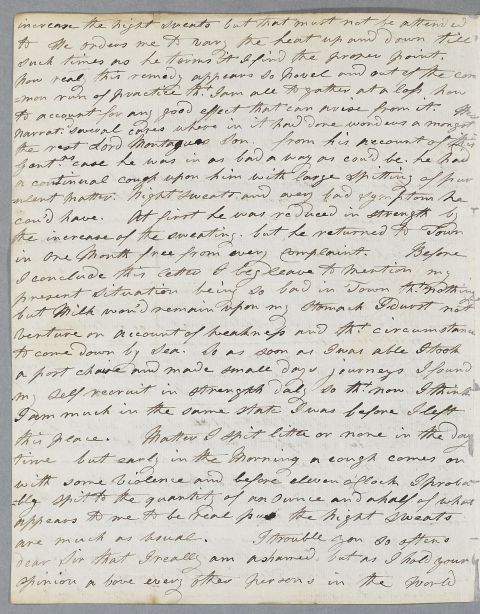 increase the Night Sweats but that must not be attended
to He orders me to vary the heat up and down till
such times as he terms it I find the proper point.
Now real, this remedy appears so Novel and out of the com
mon run of practice tht. I am all to gather at a loss, how
to account for any good effect that can arise from it. He
narrats. several cases where in it had done wonders a mongst
the rest Lord Montagues Son, from his account of this
Gentns. case he was in as bad a way as cou'd be. he had
a continual cough upon him with large spitting of puru
lent matter. Night Sweats and every bad symptom he
cou'd have. At first he was reduced in strength by
the increase of the sweating. but he returned to Town
in one Month free from every complaint. Before
I conclude this Letter I beg leave to mention my
present situation being so bad in Town tht. nothing
but Milk wou'd remain upon my Stomach I durst not
venture on account of weakness and tht. circumstance
to come down by Sea. So as soon as I was able I took
a post chaise and made small days journeys I found
my self recruit in strength daly so tht. now I think
I am much in the same state I was before I left
this place. Matter I spit little or none in the day
time but early in the Morning a cough comes on
with some Violence and before eleven o'Clock I proba-
-bly spit to the quantity of an ounce and a half of what
appears to me to be real pus the Night Sweats
are much as usual. I trouble you so often
dear Sir that I really am ashamed but as I hold your
opinion a bove every other persons in the World